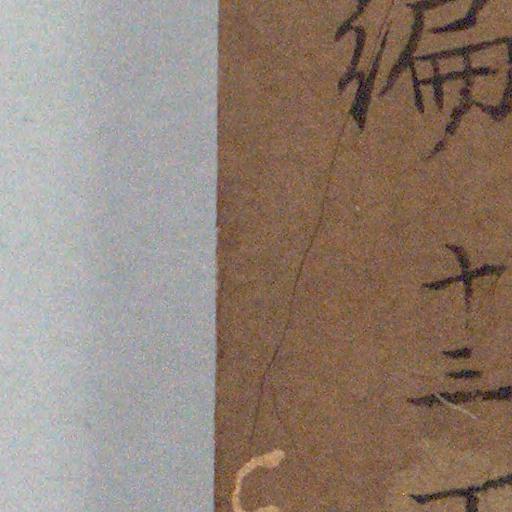 編
十三